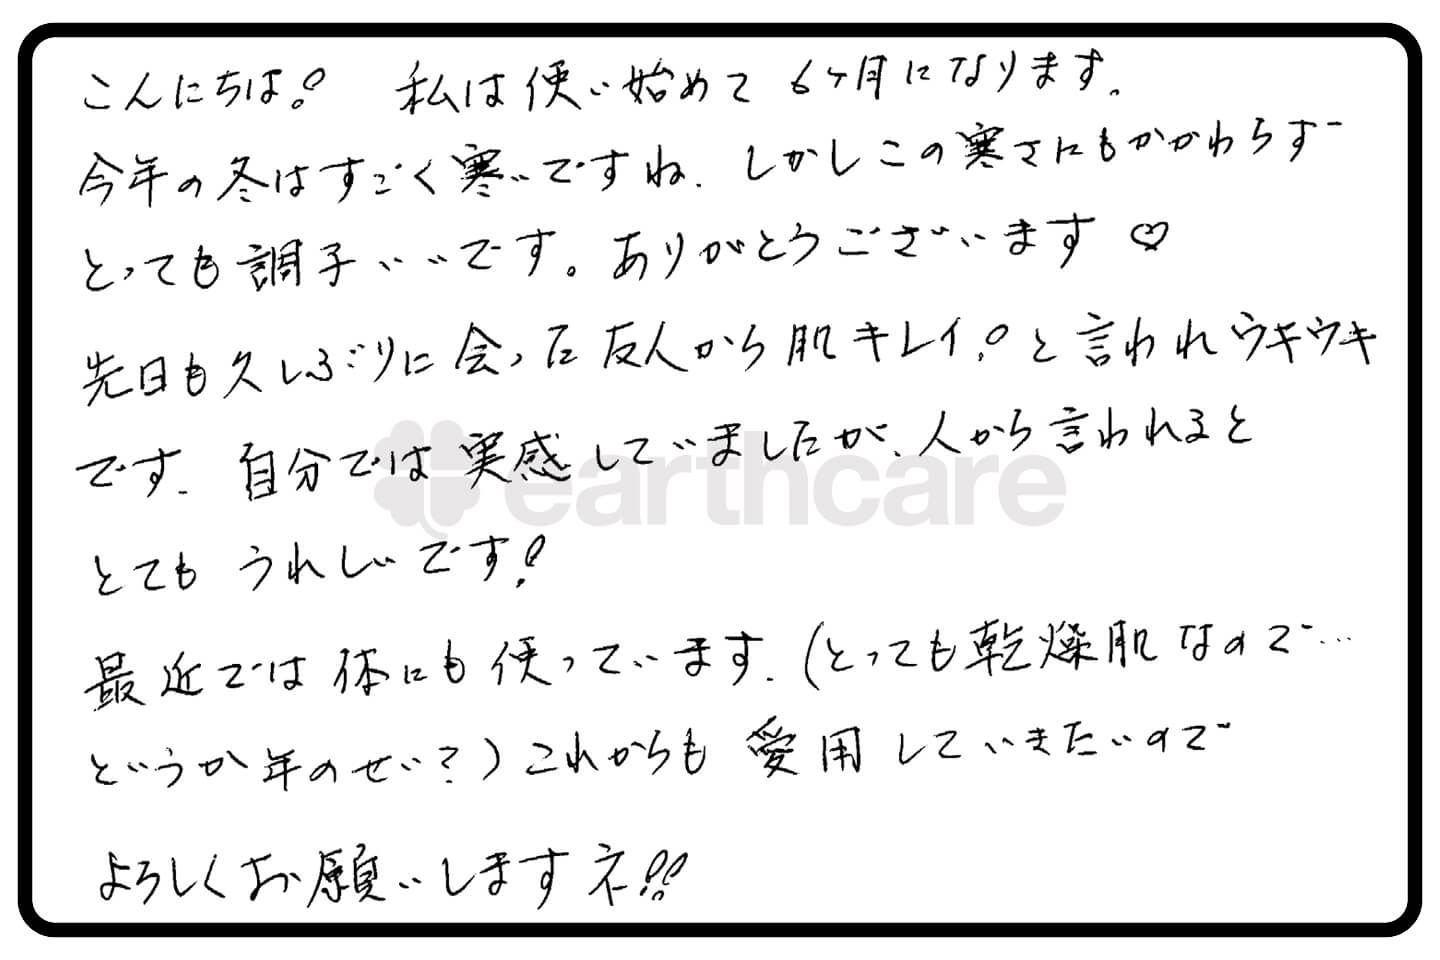 こんにちは! 私は使い始めて6ヶ月になります.
今年の冬はすごく寒いですね. しかしこの寒さにもかかわらず
とっても調子いいです。ありがとうございます♡
先日も久しぶりに会った友人から肌キレイ!と言われウキウキ
です. 自分では実感していましたが、人から言われると
とてもうれしいです!
最近では体にも使っています. (とっても乾燥肌なので…
というか年のせい?) これからも愛用していきたいので
よろしくお願いしますネ!!
earthcare